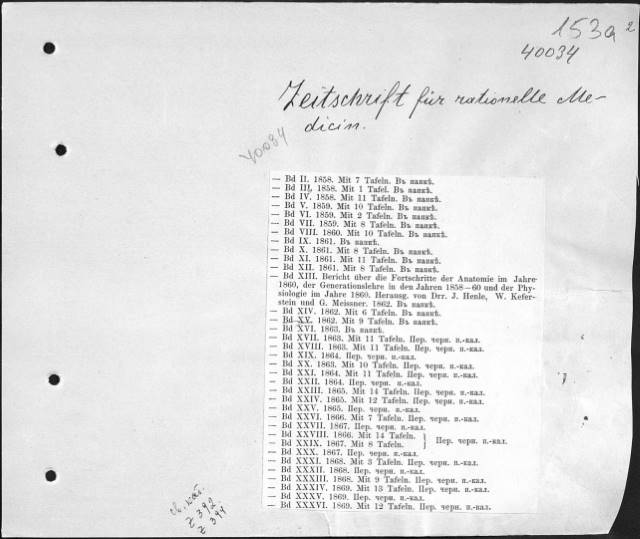 153a 2
40034
Zeitschrift für rationelle Me-
dicin.
40034
— Bd II. 1858. Mit 7 Tafeln. Въ папкѣ.
— Bd III. 1858. Mit 1 Tafel. Въ папкѣ.
— Bd IV. 1858. Mit 11 Tafeln. Въ папкѣ.
— Bd V. 1859. Mit 10 Tafeln. Въ папкѣ.
— Bd VI. 1859. Mit 2 Tafeln. Въ папкѣ.
— Bd VII. 1859. Mit 8 Tafeln. Въ папкѣ.
— Bd VIII. 1860. Mit 10 Tafeln. Въ папкѣ.
— Bd IX. 1861. Въ папкѣ.
— Bd X. 1861. Mit 8 Tafeln. Въ папкѣ.
— Bd XI. 1861. Mit 11 Tafeln. Въ папкѣ.
— Bd XII. 1861. Mit 8 Tafeln. Въ папкѣ.
— Bd XIII. Bericht über die Fortschritte der Anatomie im Jahre
1860, der Generationslehre in den Jahren 1858—60 und der Phy-
siologie im Jahre 1860. Herausg. von Drr. J. Henle, W. Kefer-
stein und G. Meissner. 1862. Въ папкѣ.
— Bd XIV. 1862. Mit 6 Tafeln. Въ папкѣ.
— Bd XV. 1862. Mit 9 Tafeln. Въ папкѣ.
— Bd XVI. 1863. Въ папкѣ.
— Bd XVII. 1863. Mit 11 Tafeln. Пер. черн. п.-кал.
— Bd XVIII. 1863. Mit 11 Tafeln. Пер. черн. п.-кал.
— Bd XIX. 1864. Пер. черн. п.-кал.
— Bd XX. 1863. Mit 10 Tafeln. Пер. черн. п.-кал.
— Bd XXI. 1864. Mit 11 Tafeln. Пер. черн. п.-кал.
— Bd XXII. 1864. Пер. черн. п.-кал.
— Bd XXIII. 1865. Mit 14 Tafeln. Пер. черн. п.-кал.
— Bd XXIV. 1865. Mit 12 Tafeln. Пер. черн. п.-кал.
— Bd XXV. 1865. Пер. черн. п.-кал.
— Bd XXVI. 1866. Mit 7 Tafeln. Пер. черн. п.-кал.
— Bd XXVII. 1867. Пер. черн. п.-кал.
— Bd XXVIII. 1866. Mit 14 Tafeln.
— Bd XXIX. 1867. Mit 8 Tafeln. } Пер. черн. п.-кал.
— Bd XXX. 1867. Пер. черн. п.-кал.
— Bd XXXI. 1868. Mit 3 Tafeln. Пер. черн. п.-кал.
— Bd XXXII. 1868. Пер. черн. п.-кал.
— Bd XXXIII. 1868. Mit 9 Tafeln. Пер. черн. п.-кал.
— Bd XXXIV. 1869. Mit 13 Tafeln. Пер. черн. п.-кал.
— Bd XXXV. 1869. Пер. черн. п.-кал.
— Bd XXXVI. 1869. Mit 12 Tafeln. Пер. черн. п.-кал.
z 392
z 394